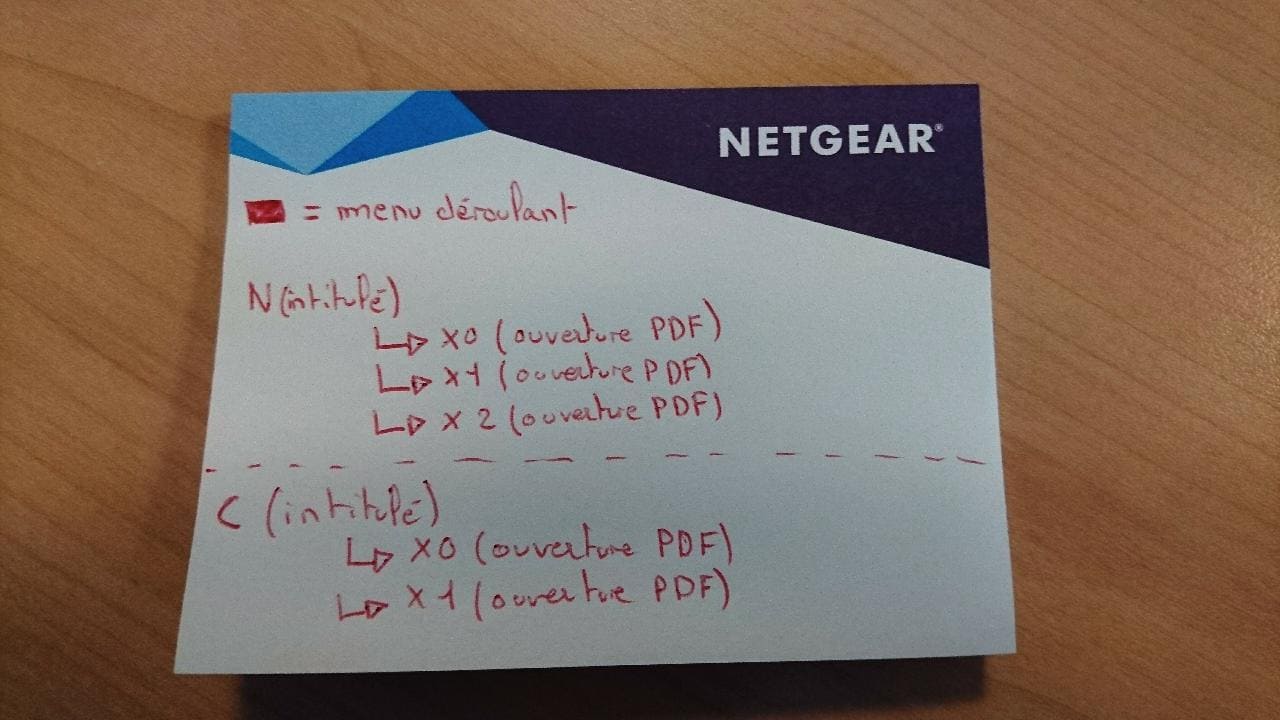 NETGEAR®
= menu déroulant
N (intitulé)
X0 (ouverture PDF)
X1 (ouverture PDF)
X2 (ouverture PDF)
C (intitulé)
X0 (ouverture PDF)
X1 (ouverture PDF)